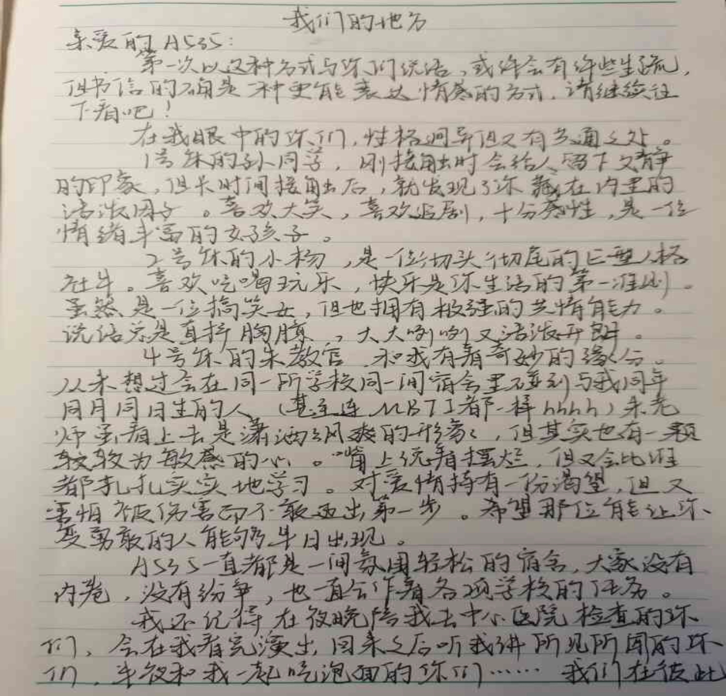 我们的地方
亲爱的A535：
第一次以这种方式与你们说话，或许会有许些生疏，
但书信的确是一种更能表达情感的方式，请继续往
下看吧！
在我眼中的你们，性格迥异但又有共通之处。
1号床的孙同学，刚接触时会给人留下文静
的印象，但长时间接触后，就发现了你藏在内里的
活泼因子。喜欢大笑，喜欢追剧，十分感性，是一位
情绪丰富的女孩子。
2号床的小杨，是一位彻头彻尾的E型人格
社牛。喜欢吃喝玩乐，快乐是你生活的第一准则。
虽然是一位搞笑女，但也拥有极强的共情能力。
说话总是直抒胸臆，大大咧咧又活泼开朗。
4号床的朱教官，和我有着奇妙的缘分。
从未想过会在同一所学校同一间宿舍里碰到与我同年
同月同日生的人（甚至连MBTI都一样hhhh）朱老
师虽看上去是潇洒飒爽的形象，但其实也有一颗
较为敏感的心。嘴上说着摆烂，但又会比谁
都扎扎实实地学习。对爱情持有一份渴望，但又
害怕被伤害而不敢迈出第一步。希望那位能让你
变勇敢的人能够早日出现。
A535一直都是一间氛围轻松的宿舍，大家没有
内卷，没有纷争，也一直合作着各项学校的任务。
我还记得在夜晚陪我去中心医院检查的你
们，会在我看完演出回来之后听我讲所见所闻的你
们，半夜和我一起吃泡面的你们……我们在彼此